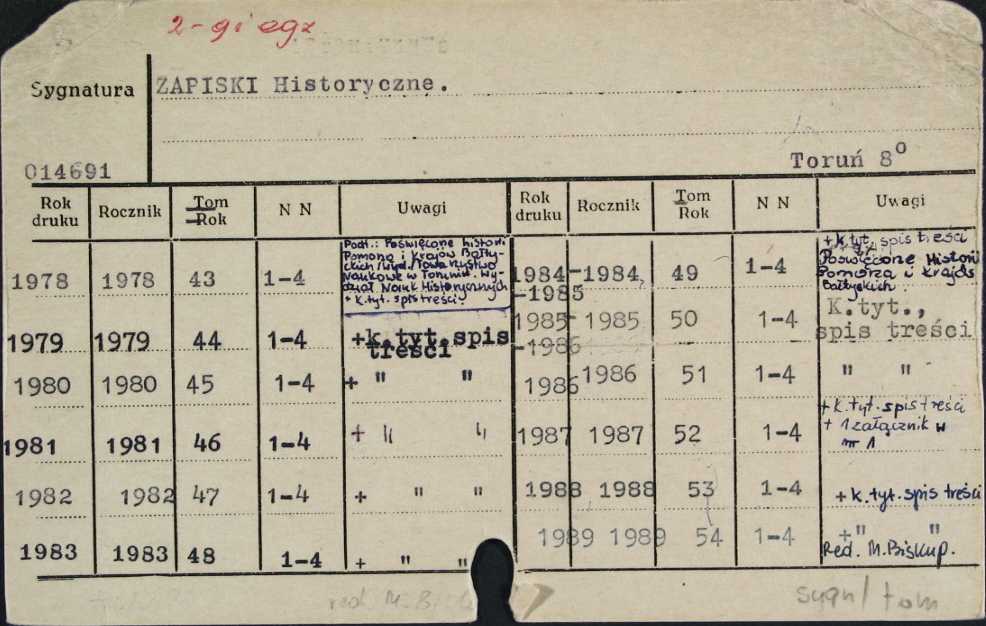 2-gi egz
Sygnatura ZAPISKI Historyczne.
014691 Toruń 8⁰
Rok druku Rocznik Tom Rok N N Uwagi Rok druku Rocznik Tom Rok N N Uwagi
1978 1978 43 1-4
Podt.: Poświęcone historii
Pomorza i Krajów Bałty-
ckich/wyd./Towarzystwo
Naukowe w Toruniu. Wy-
dział Nauk Historycznych
+ k.tyt. spis treści.
1979 1979 44 1-4 +k.tyt.spis
treści
1980 1980 45 1-4 + " "
1981 1981 46 1-4 + " "
1982 1982 47 1-4 + " "
1983 1983 48 1-4 + " "
1984- 1984 49 1-4
-1985
+ k.tyt. spis treści
Poświęcone Historii
Pomorza i Krajów
Bałtyckich
1985- 1985 50 1-4 K.tyt.,
-1986 spis treści
1986 1986 51 1-4 " "
1987 1987 52 1-4
+ k.tyt. spis treści
+ 1 załącznik w
nr 1
1988 1988 53 1-4 + k.tyt. spis treści
1989 1989 54 1-4 + " "
Red. M.Biskup.
red. M. sygn/tom